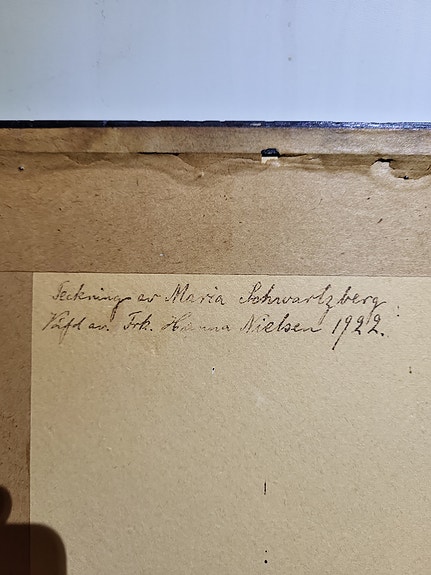 Teckning av Maria Schwartzberg
Väfd av. Frk. Hanna Nielsen 1922.